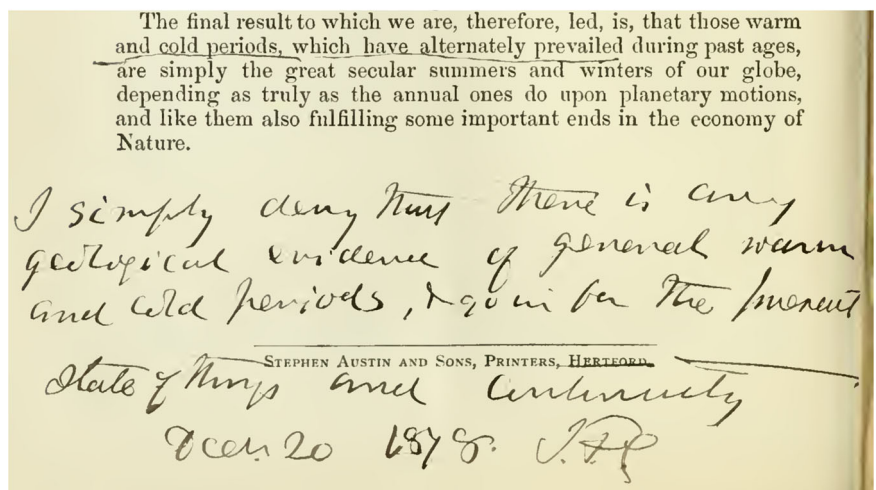 The final result to which we are, therefore, led, is, that those warm
and cold periods, which have alternately prevailed during past ages,
are simply the great secular summers and winters of our globe,
depending as truly as the annual ones do upon planetary motions,
and like them also fulfilling some important ends in the economy of
Nature.
I simply deny that there is any
geological evidence of general warm
and cold periods, & go in for the present
STEPHEN AUSTIN AND SONS, PRINTERS, HERTFORD.
State of things and continuity
20 1878.